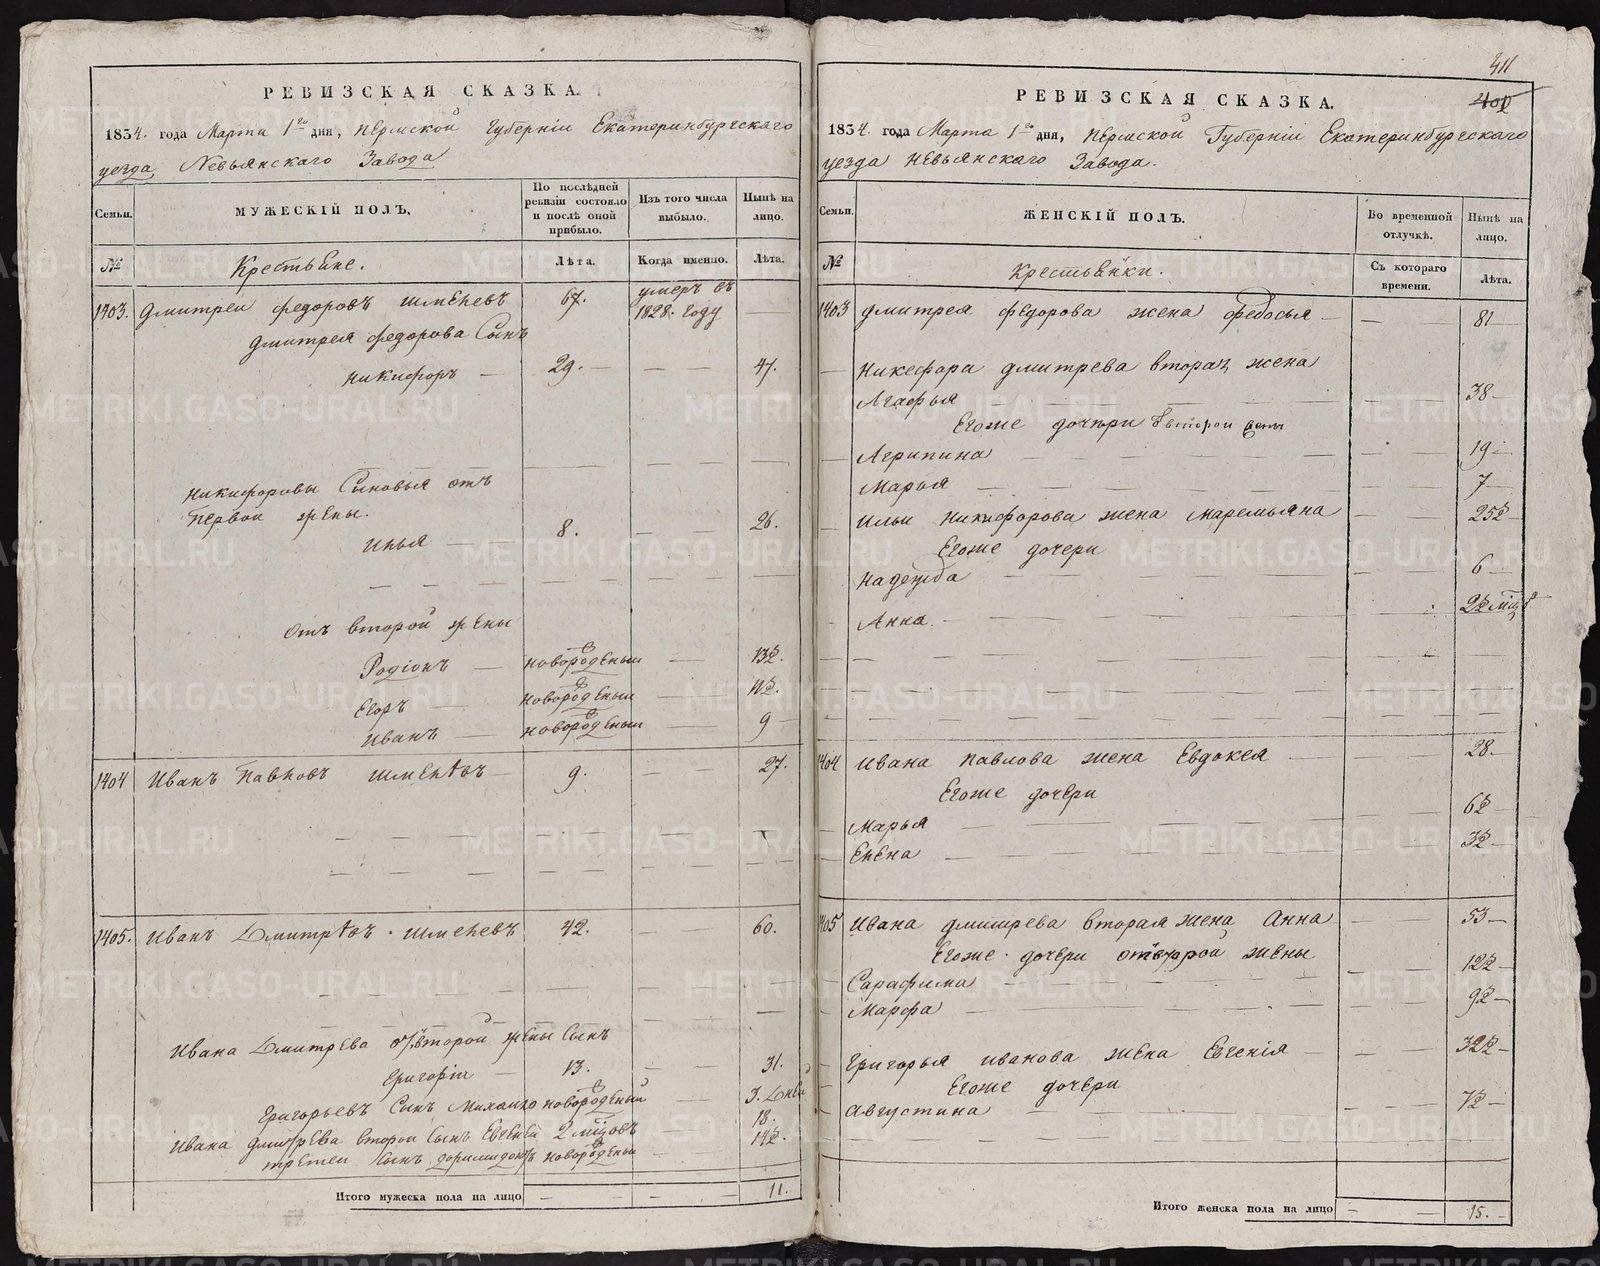 РЕВИЗСКАЯ СКАЗКА.
1834. года Марта 1го дня, Пермской Губерніи Екатеринбургскаго
уезда, Невьянскаго Завода
Семьи.
МУЖЕСКІЙ ПОЛЪ.
По послѣдней ревизіи состояло и послѣ оной прибыло.
Изъ того числа выбыло.
Нынѣ на лицо.
№
Крестьяне.
Лѣта.
Когда именно.
Лѣта.
1403. Дмитреи Федоровъ Шмелевъ 67. умеръ въ 1828. году —
Дмитрея Федорова Сынъ
Никифоръ — 29. — — — 47.
Никифоровы Сыновья отъ
первои жены.
Илья — — 8. — — 26.
отъ второй жены
Родіонъ — новорожденыи — 13½.
Егоръ — новорожденыи — 11½.
Иванъ — новорожденыи — 9 —
1404 Иванъ Павловъ Шмелѣвъ — 9. — 27.
1405. Иванъ Дмитрѣвъ Шмелевъ 42. — — 60.
Ивана Дмитрева отвторой жены Сынъ
Григоріи — 13. — — 31.
Григорьевъ Сынъ Михаило новорожденыи — 3. дней
Ивана Дмитрева второи Сынъ Евгеней 2 мцовъ 18.
третеи Сынъ доримидонтъ новорожденыи — 14½.
Итого мужеска пола на лицо — — 11.
411
400
РЕВИЗСКАЯ СКАЗКА.
1834. года Марта 1го дня, Пермской Губерніи Екатеринбургскаго
уезда Невьянскаго Завода.
Семьи.
ЖЕНСКІЙ ПОЛЪ.
Во временной отлучкѣ.
Нынѣ на лицо.
№
Крестьянки.
Съ котораго времени.
Лѣта.
1403 Дмитрея Федорова жена Федосья — — — 81
Никефора Дмитрева вторая жена
Агафья — — — 38 —
Егоже дочери от второи жены
Агрипина — — — 19 —
Марья — — — 7 —
Ильи Никифорова жена Маремьяна — — 25½ —
Егоже дочери
Надежда — — 6 —
Анна. — — 2½ мцъ
1404 Ивана Павлова жена Евдокея — — 28.
Егоже дочери
Марья — — 6½ —
Елена — — 3½ —
1405 Ивана Дмитрева вторая жена Анна — — 53 —
Егоже дочери отвторой жены
Сарафима — — 12½ —
Марфа — — 9½ —
Григорья Иванова жена Евгенія — — 32½ —
Егоже дочери
Августина — — 7½ —
Итого женска пола на лицо — — 15. —
METRIKI.GASO-URAL.RU